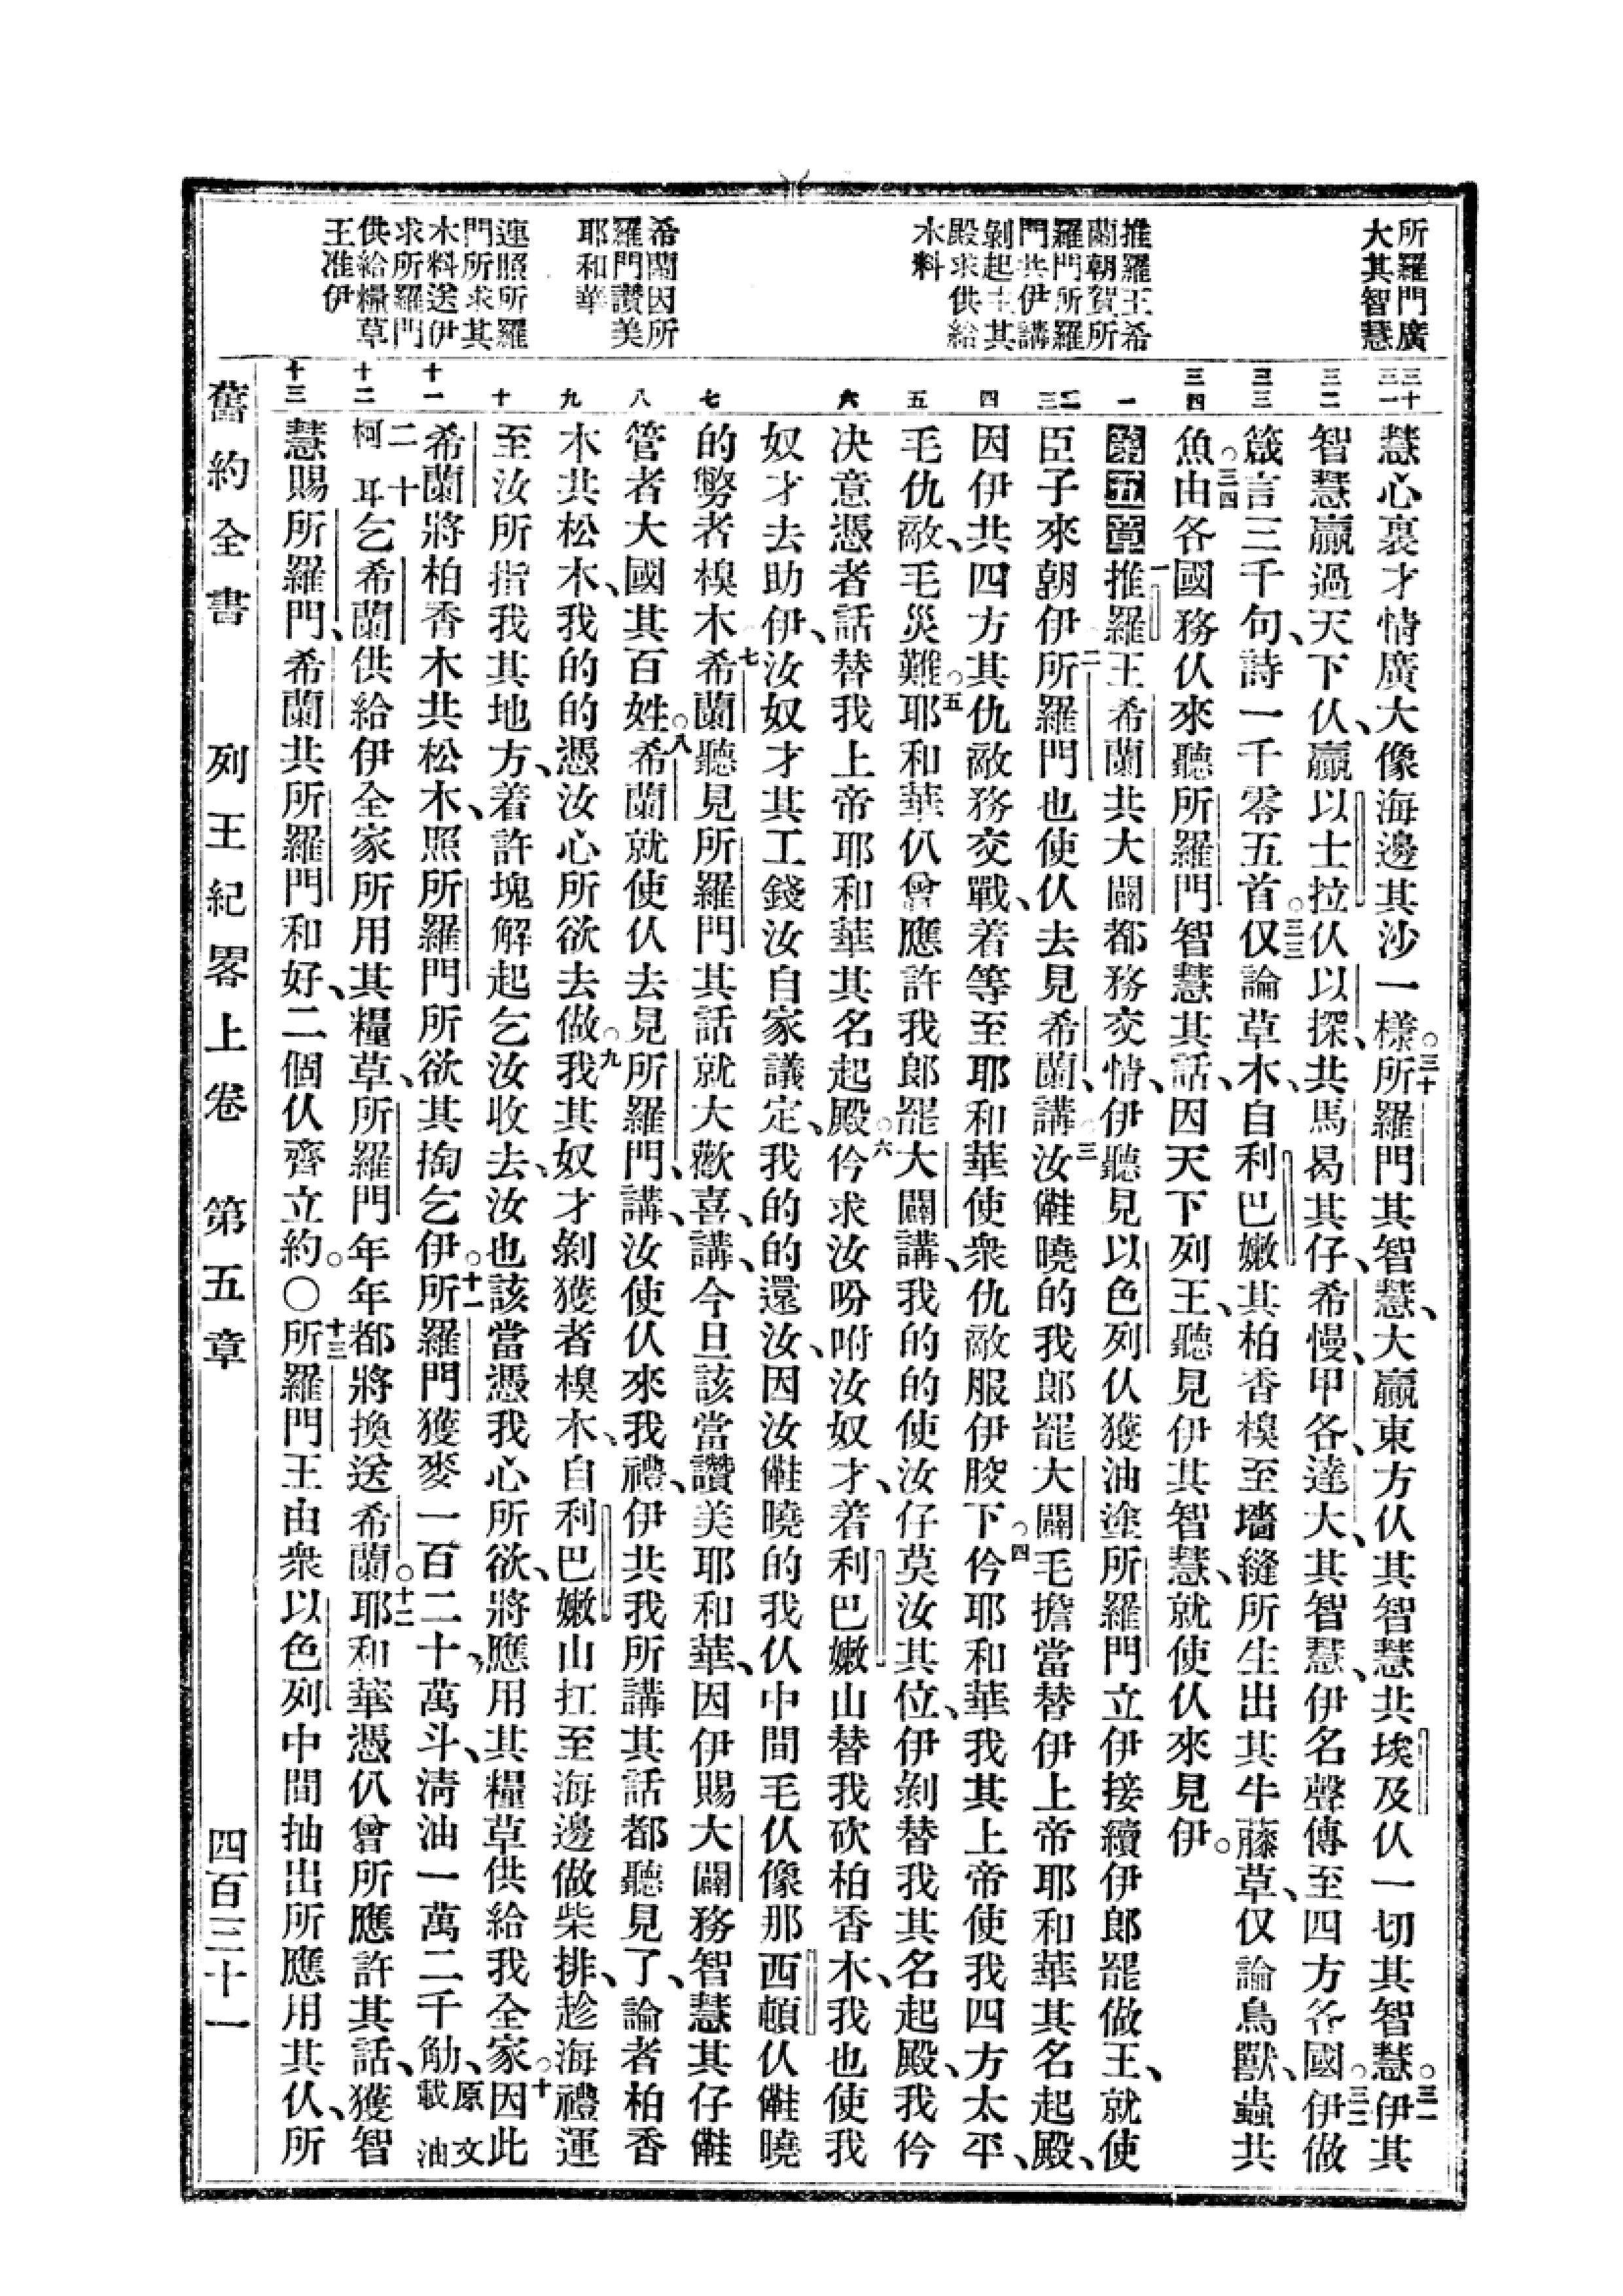 所羅門廣
大其智慧
推羅王希
蘭朝賀所
羅門所羅
門共伊講
剝起主其
殿求供給
木料
希蘭因所
羅門讚美
耶和華
運照所羅
門所求其
木料送伊
求所羅門
供給糧草
王准伊
三十
三一
三二
三三
三四
一
二
三
四
五
六
七
八
九
十
十一
十二
十三
慧心裏才情廣大像海邊其沙一樣。三十所羅門其智慧、大贏東方仈其智慧共埃及仈一切其智慧。三一伊其
智慧贏過天下仈、贏以士拉仈以探、共馬曷其仔、希慢、甲各、達大、其智慧、伊名聲傳至四方各國。三二伊做
箴言三千句、詩一千零五首。三三仅論草木、自利巴嫩其柏香模至墻縫所生出其牛藤草、仅論鳥獸、蟲共
魚。三四由各國務仈來聽所羅門智慧其話、因天下列王、聽見伊其智慧、就使仈來見伊。
第五章一推羅王希蘭共大闢都務交情、伊聽見以色列仈獲油塗所羅門立伊接續伊郎罷做王、就使
臣子來朝伊。二所羅門也使仈去見希蘭、講。三汝㒊曉的我郎罷大闢毛擔當替伊上帝耶和華其名起殿、
因伊共四方其仇敵務交戰、着等至耶和華使衆仇敵服伊骹下。四伶耶和華我其上帝使我四方太平、
毛仇敵、毛災難。五耶和華仈曾應許我郎罷大闢講、我的的使汝仔莫汝其位、伊剝替我其名起殿、我伶
决意憑者話替我上帝耶和華其名起殿。六伶求汝吩咐汝奴才、着利巴嫩山替我砍柏香木、我也使我
奴才去助伊、汝奴才其工錢汝自家議定、我的的還汝、因汝㒊曉的我仈中間毛仈像那西頓仈㒊曉
的斃者模木。七希蘭聽見所羅門其話就大歡喜、講、今旦該當讚美耶和華、因伊賜大闢務智慧其仔㒊
管者大國其百姓。八希蘭就使仈去見所羅門、講、汝使仈來我禮、伊共我所講其話都聽見了、論者柏香
木共松木、我的的憑汝心所欲去做。九我其奴才剝獲者模木、自利巴嫩山扛至海邊做柴排、趁海禮運
至汝所指我其地方、着許塊解起乞汝收去、汝也該當憑我心所欲、將應用其糧草供給我全家。十因此
希蘭將柏香木共松木、照所羅門所欲其掏乞伊。十一所羅門獲麥一百二十萬斗、淸油一萬二千觔、原文載油
二十柯耳乞希蘭供給伊全家所用其糧草、所羅門年年都將換送希蘭。十二耶和華憑仈曾所應許其話、獲智
慧賜所羅門、希蘭共所羅門和好、二個仈齊立約。○十三所羅門王由衆以色列中間抽出所應用其仈、所
舊約全書 列王紀畧上卷 第五章 四百三十一